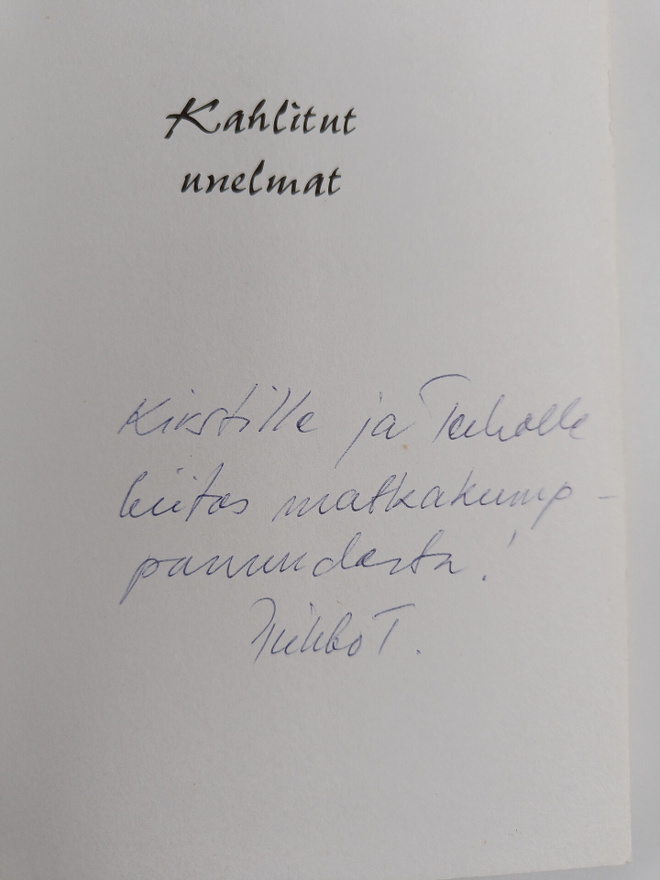 Kahlitut
unelmat
Kirstille ja Teiholle
kiitos matkakump-
panuudesta!
T.